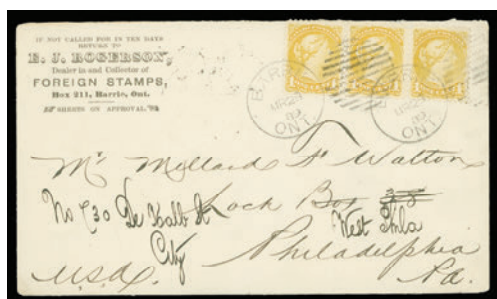 IF NOT CALLED FOR IN TEN DAYS
RETURN TO
E. J. ROGERSON,
Dealer in and Collector of
FOREIGN STAMPS,
Box 211, Barrie, Ont.
SHEETS ON APPROVAL.
BARRIE
ONT.
Mr. Millard F. Walton
Lock Box 38
No 730 De Kalb St
West Phila
City
Philadelphia
U.S.A.
Pa.